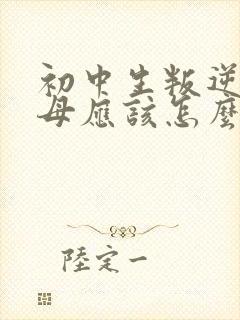 初中生叛逆
母應該怎麼
陸定一